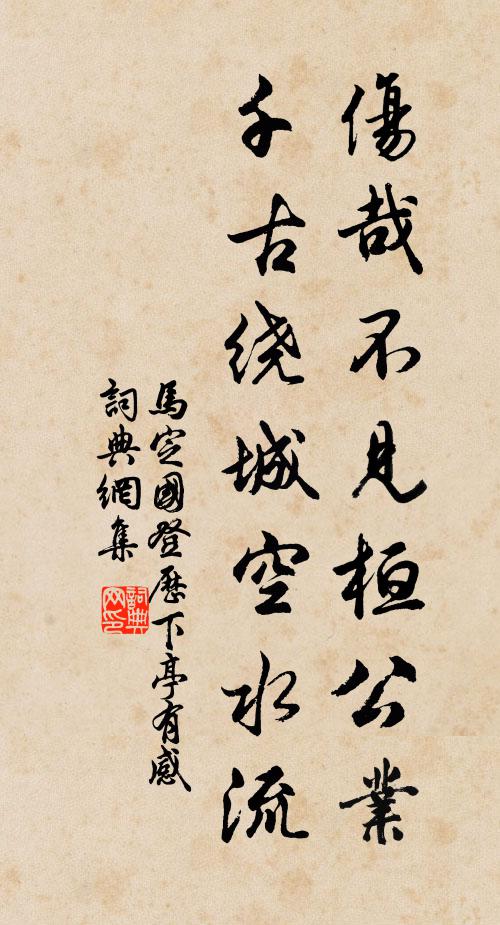 傷哉不見桓公業
千古绕城空水流
馬定國登歷下亭有感
詞典網集
詞典網印